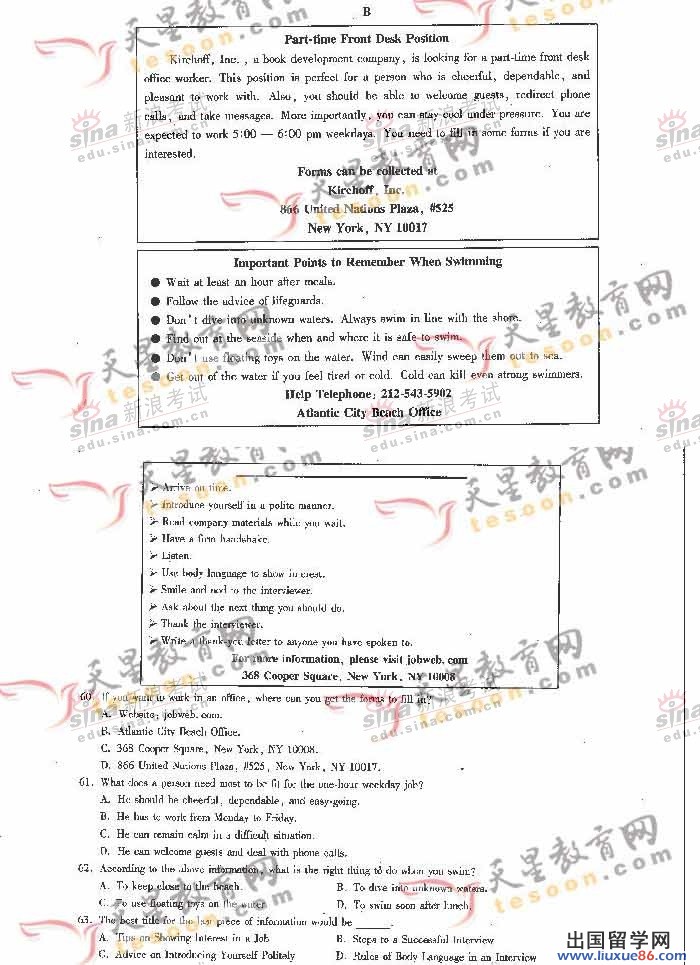 B
Part-time Front Desk Position
Kirchoff, Inc., a book development company, is looking for a part-time front desk
office worker. This position is perfect for a person who is cheerful, dependable, and
pleasant to work with. Also, you should be able to welcome guests, redirect phone
calls, and take messages. More importantly, you can stay cool under pressure. You are
expected to work 5:00 — 6:00 pm weekdays. You need to fill in some forms if you are
interested.
Forms can be collected at
Kirchoff, Inc.
866 United Nations Plaza, #525
New York, NY 10017
Important Points to Remember When Swimming
● Wait at least an hour after meals.
● Follow the advice of lifeguards.
● Don't dive into unknown waters. Always swim in line with the shore.
● Find out at the seaside when and where it is safe to swim.
● Don't use floating toys on the water. Wind can easily sweep them out to sea.
● Get out of the water if you feel tired or cold. Cold can kill even strong swimmers.
Help Telephone: 212-543-5902
Atlantic City Beach Office
➢ Arrive on time.
➢ Introduce yourself in a polite manner.
➢ Read company materials while you wait.
➢ Have a firm handshake.
➢ Listen.
➢ Use body language to show interest.
➢ Smile and nod to the interviewer.
➢ Ask about the next thing you should do.
➢ Thank the interviewer.
➢ Write a thank-you letter to anyone you have spoken to.
For more information, please visit jobweb.com
368 Cooper Square, New York, NY 10008
60. If you want to work in an office, where can you get the forms to fill in?
A. Website: jobweb.com.
B. Atlantic City Beach Office.
C. 368 Cooper Square, New York, NY 10008.
D. 866 United Nations Plaza, #525, New York, NY 10017.
61. What does a person need most to be fit for the one-hour weekday job?
A. He should be cheerful, dependable, and easy-going.
B. He has to work from Monday to Friday.
C. He can remain calm in a difficult situation.
D. He can welcome guests and deal with phone calls.
62. According to the above information, what is the right thing to do when you swim?
A. To keep close to the beach. B. To dive into unknown waters.
C. To use floating toys on the water. D. To swim soon after lunch.
63. The best title for the last piece of information would be ______.
A. Tips on Showing Interest in a Job B. Steps to a Successful Interview
C. Advice on Introducing Yourself Politely D. Rules of Body Language in an Interview
天星教育网
tesoon.com
sina 新浪考试
edu.sina.com.cn
出国留学网
www.liuxue86.com